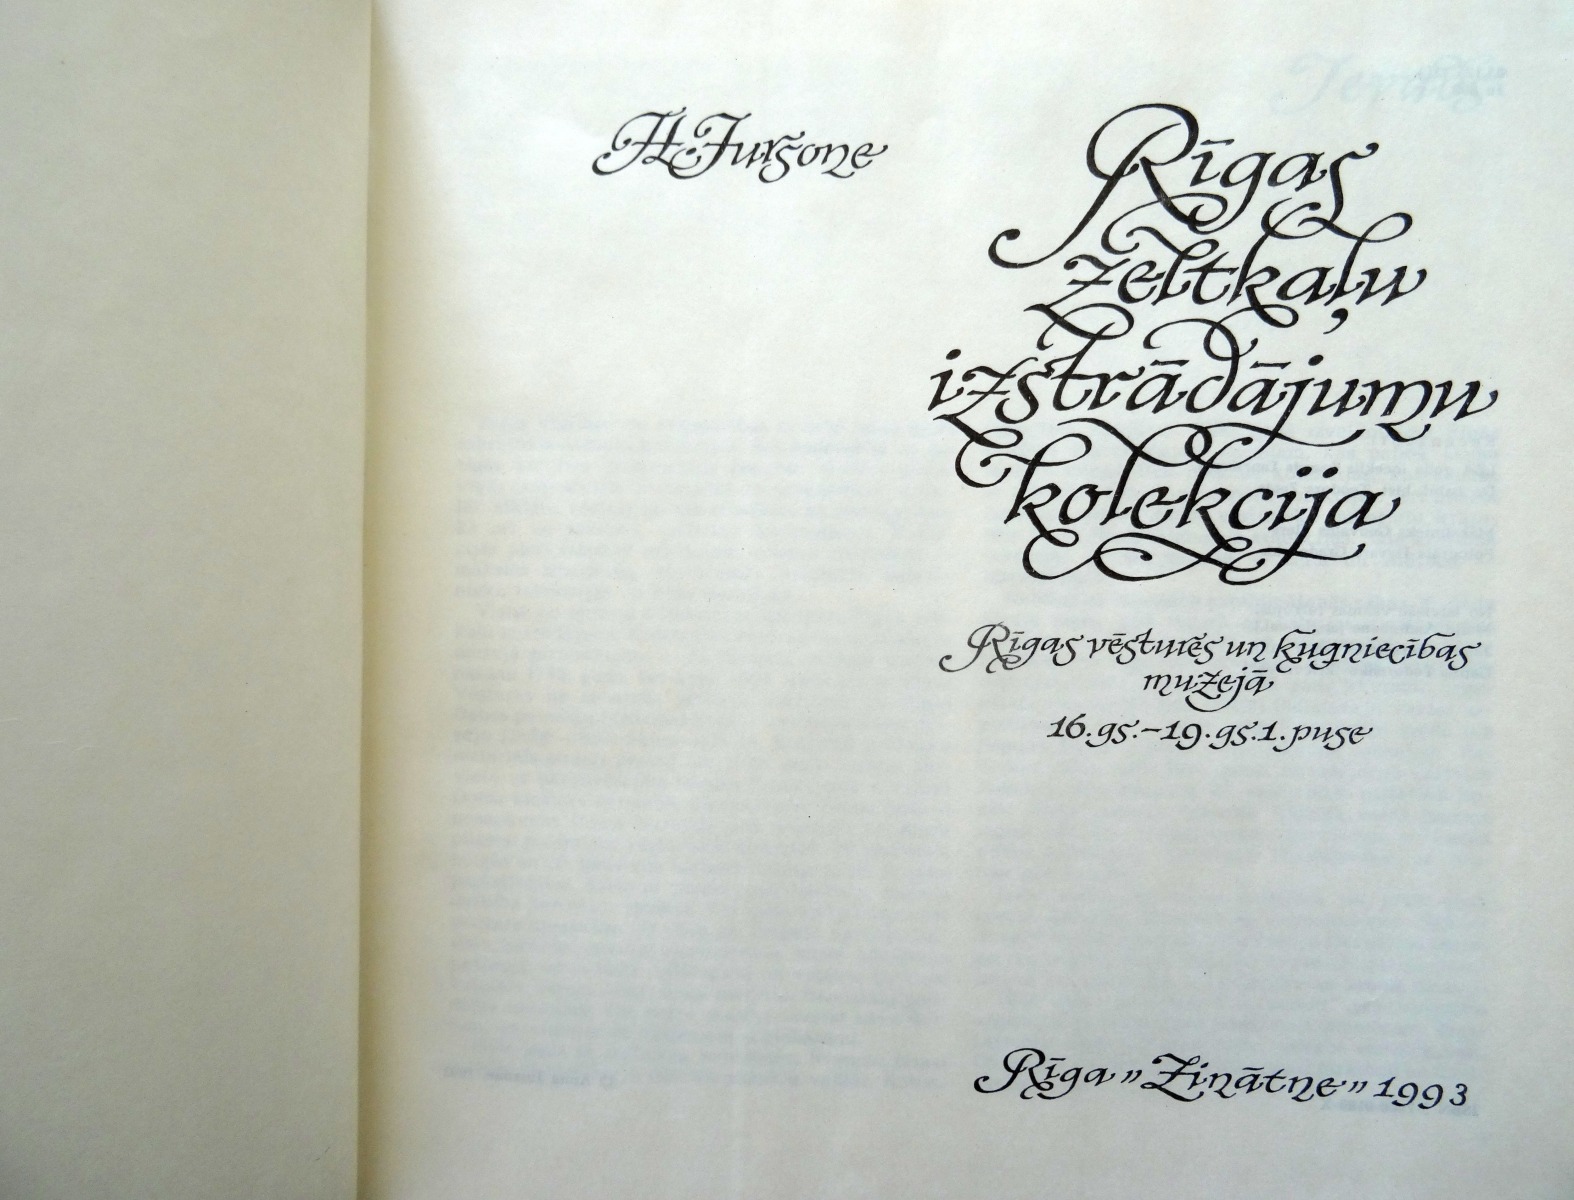 H. Juršone
Rīgas
zeltkaļu
izstrādājumu
kolekcija
Rīgas vēstures un kuģniecības
muzejā
16. gs. – 19. gs. 1. puse
Rīga „Zinātne” 1993